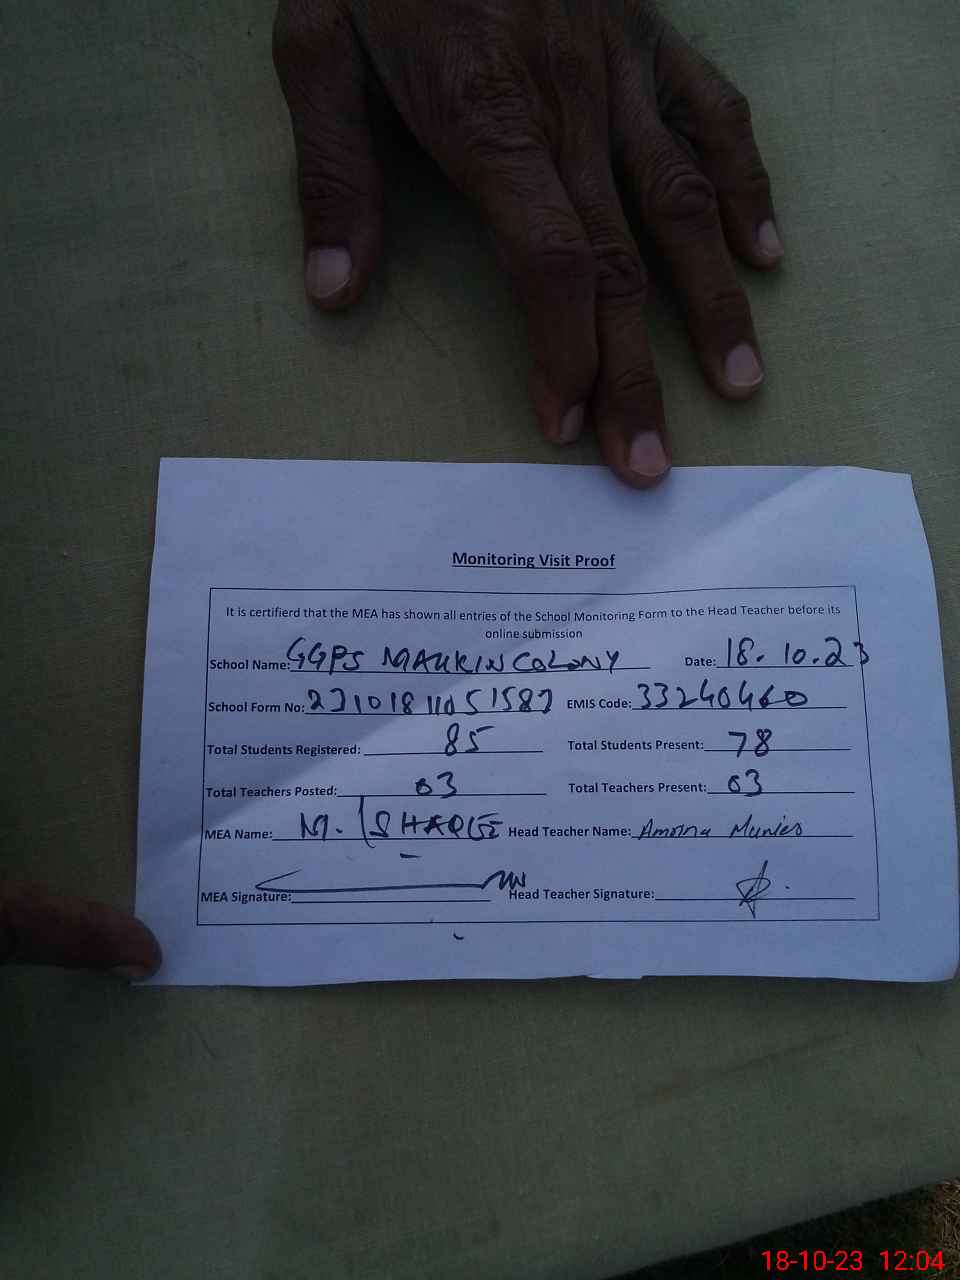 Monitoring Visit Proof
It is certifierd that the MEA has shown all entries of the School Monitoring Form to the Head Teacher before its
online submission
School Name: GGPS MAHKIN COLONY Date: 18.10.23
School Form No: EMIS Code: 33240460
Total Students Registered: 85 Total Students Present: 78
Total Teachers Posted: 03 Total Teachers Present: 03
MEA Name: M. Head Teacher Name:
MEA Signature: Head Teacher Signature:
18-10-23 12:04